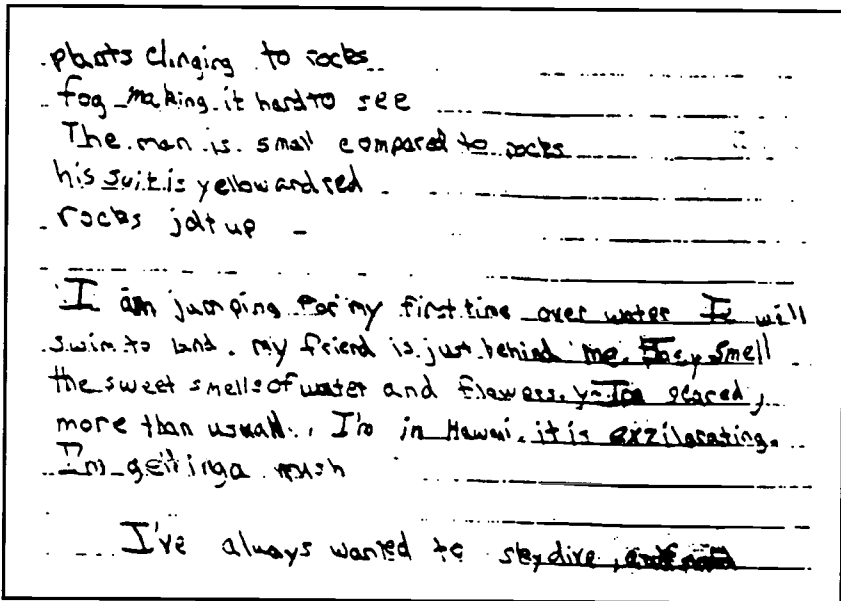 plants clinging to rocks
fog making it hard to see
The man is small compared to rocks
his suit is yellow and red
rocks jolt up
I am jumping for my first time over water I will
swim to land. my friend is just behind me. I smell
the sweet smells of water and flowers. I'm scared,
more than usuall. I'm in Hawaii. it is exzilerating.
I'm getting a rush
I've always wanted to skydive,